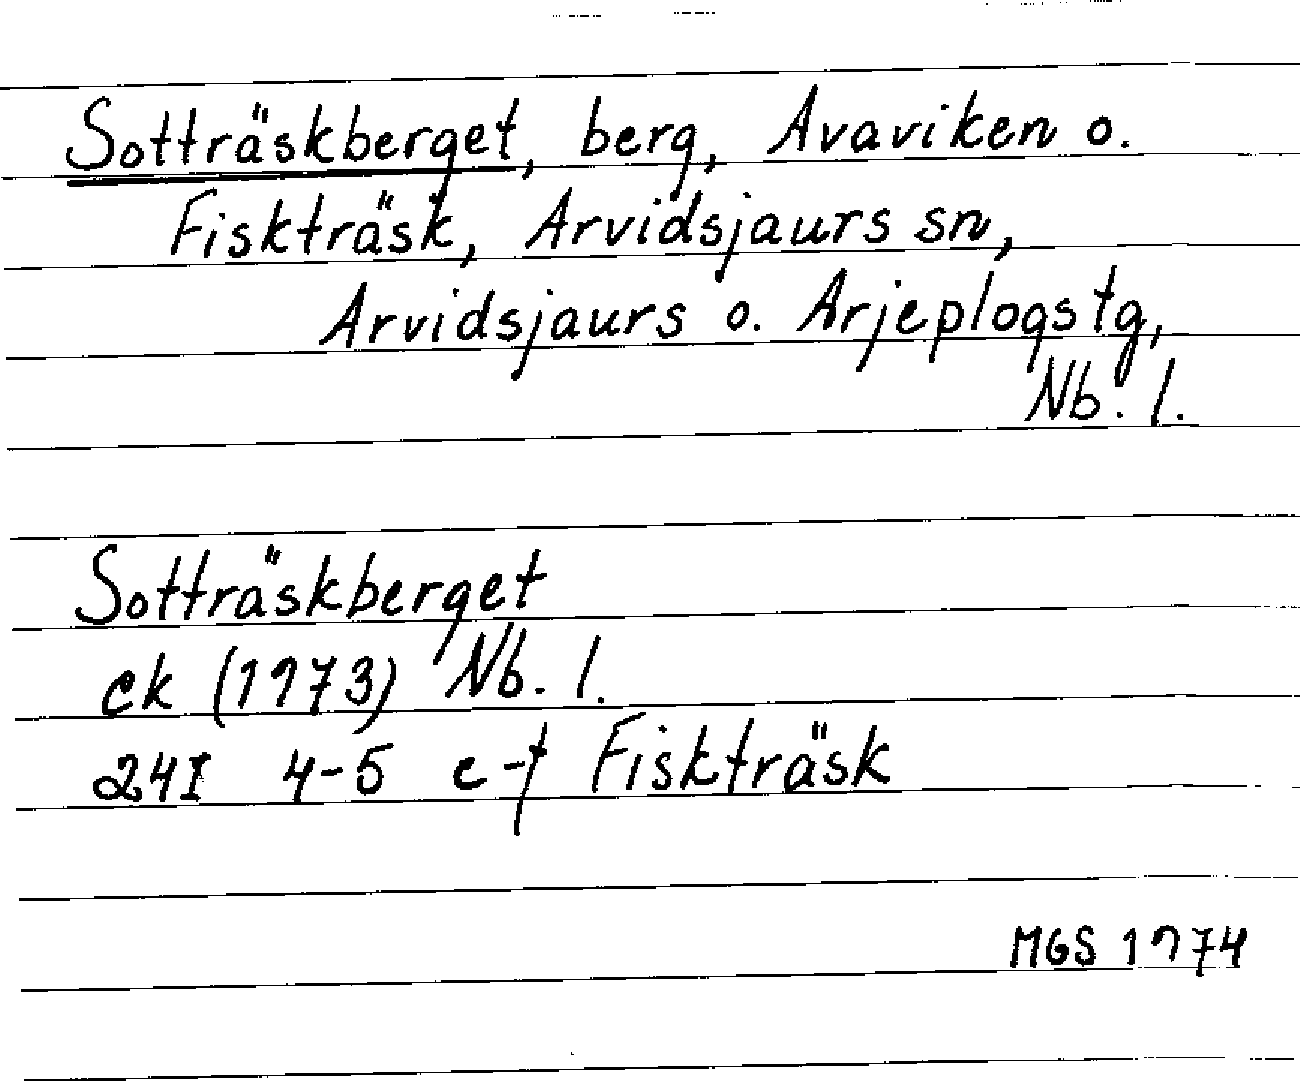 Sotträskberget, berg, Avaviken o.
Fiskträsk, Arvidsjaurs sn,
Arvidsjaurs o. Arjeplogs tg,
Nb. l.
Sotträskberget
ek (1973) Nb. l.
24I 4-5 e-f Fiskträsk
MGS 1974